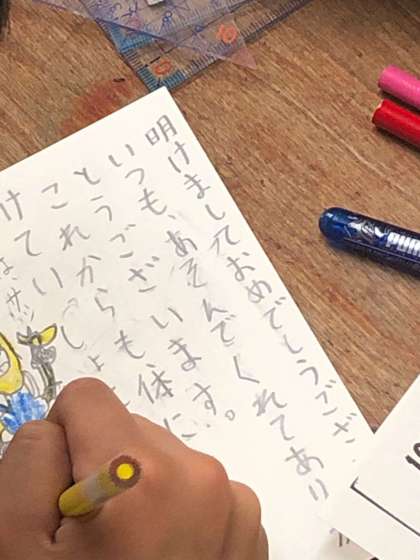 明けましておめでとうござ
いつも、あそんでくれてあり
とうございます。
これからも体に
けてい
しょ
PUM